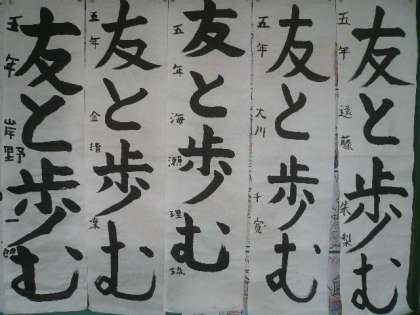 友と歩む
五年 遠藤 朱梨
友と歩む
五年 大川 千寛
友と歩む
五年 海瀬
友と歩む
五年 金指
友と歩む
五年 岸野